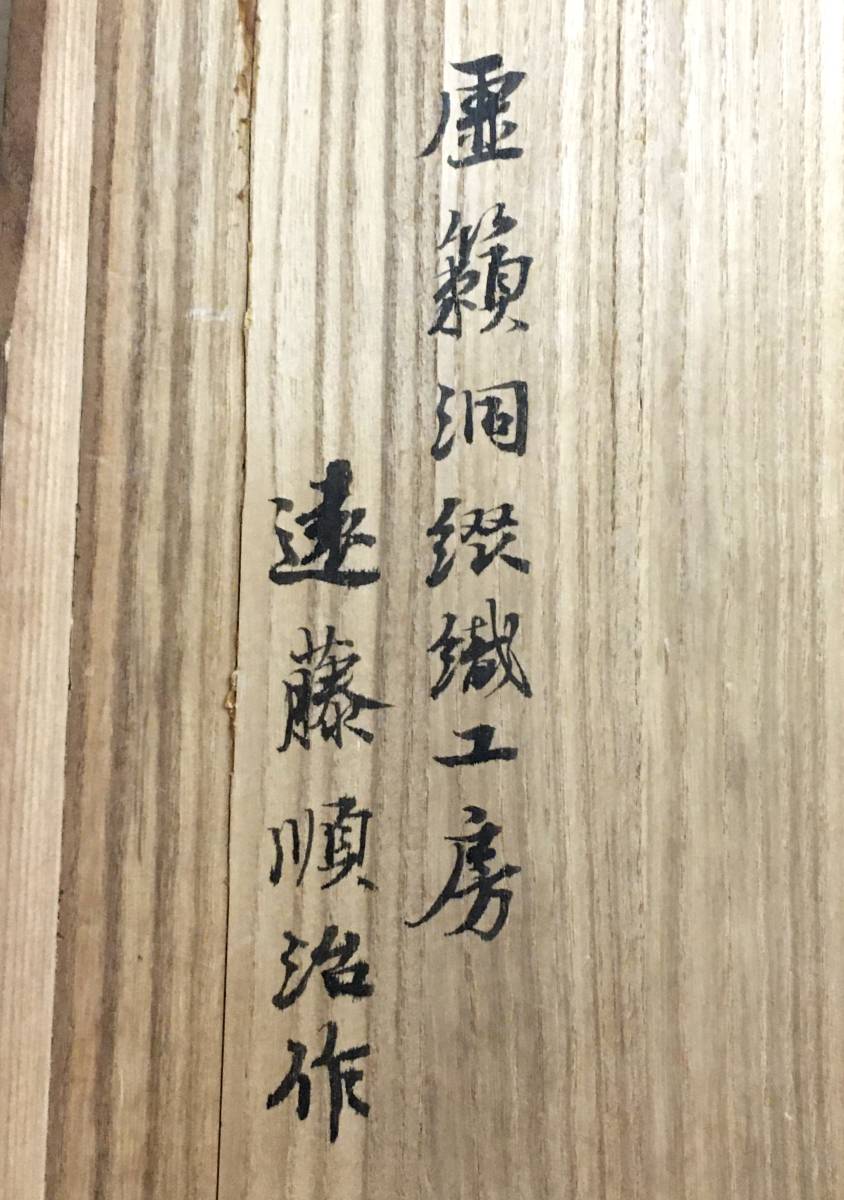 虚籟洞綴織工房
遠藤順治作